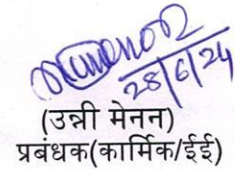 28/6/24
(उन्नी मेनन)
प्रबंधक(कार्मिक/ईई)